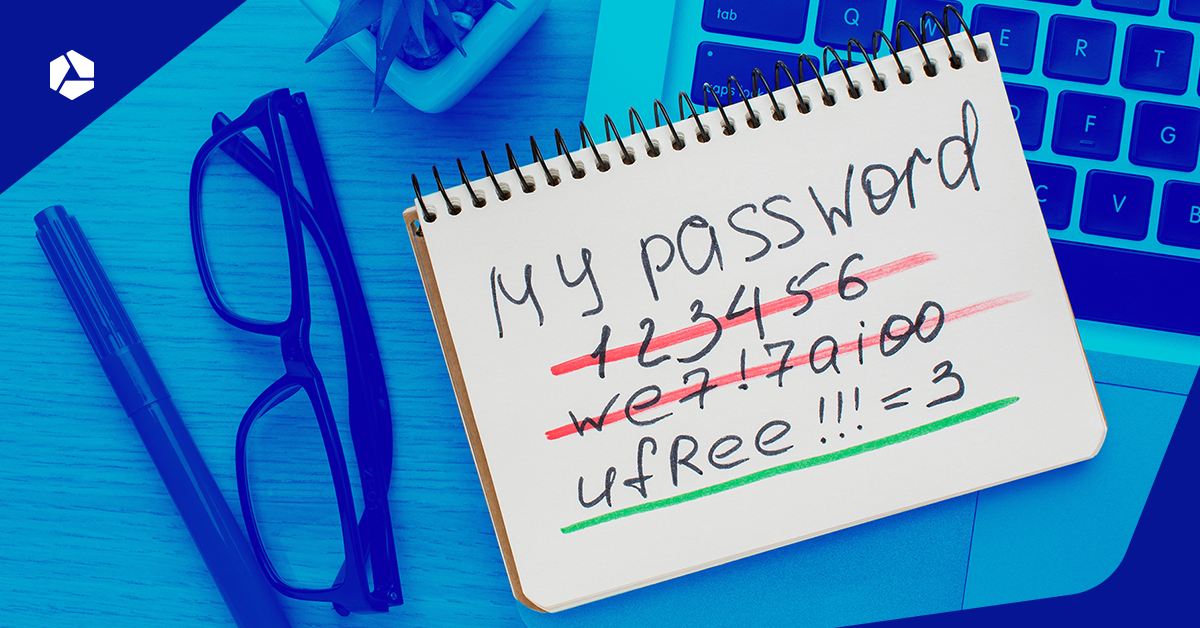 tab Q W E R T
caps lock D F G
C V B
My password
123456
we7!7aioo
ufRee!!!=3